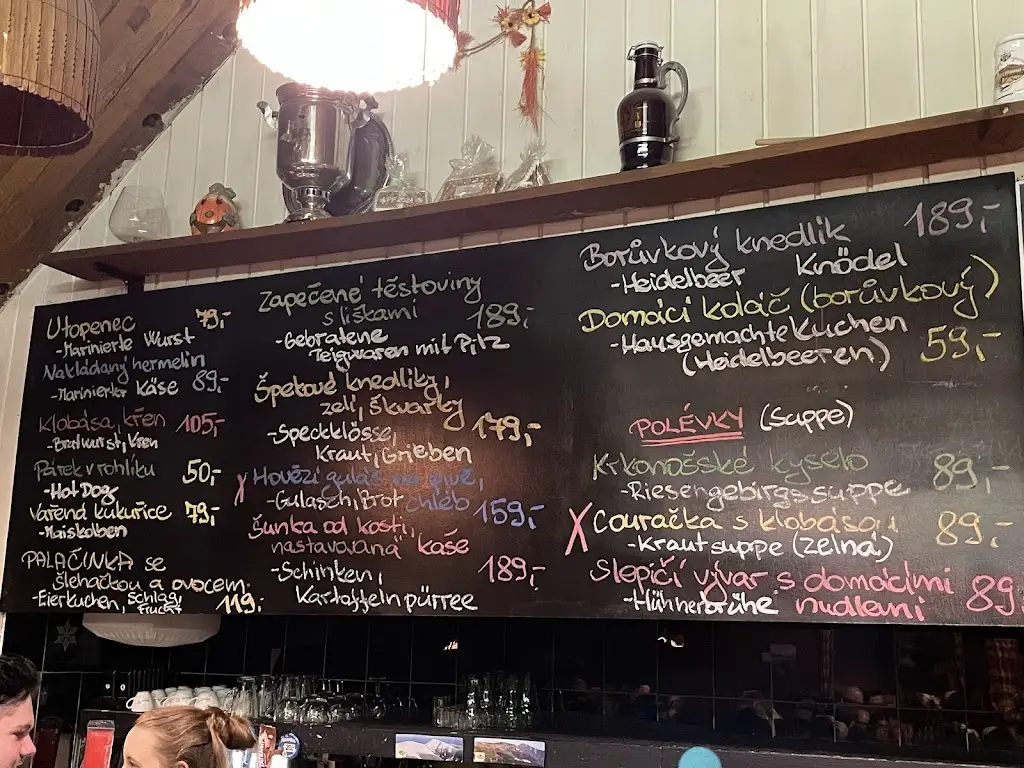 Utopenec 79,-
-Marinierte Wurst
Nakládaný hermelín
-Marinierter Käse 89,-
Klobása, křen 105,-
-Bratwurst, Kren
Párek v rohlíku 50,-
-Hot Dog
Vařená kukuřice 79,-
-Maiskolben
PALAČINKA se
šlehačkou a ovocem
-Eierkuchen, Schlag,
Frucht 119,-
Zapečené těstoviny
s liškami 189,-
-Gebratene
Teigwaren mit Pilz
Špekové knedlíky,
zelí, škvarky 179,-
-Speckklösse,
Kraut, Grieben
X Hovězí guláš na pivě,
-Gulasch, Brot chléb 159,-
Šunka od kosti,
nastavovaná kaše
-Schinken, 189,-
Kartoffelnpürree
Borůvkový knedlík 189,-
-Heidelbeer Knödel
Domácí koláč (borůvkový)
-Hausgemachte Kuchen 59,-
(Heidelbeeren)
POLÉVKY (Suppe)
Krkonošské kyselo 89,-
-Riesengebirgssuppe
X Couračka s klobásou, 89,-
-Krautsuppe (zelná)
Slepičí vývar s domácími
-Hühnerbrühe nudlemi 89